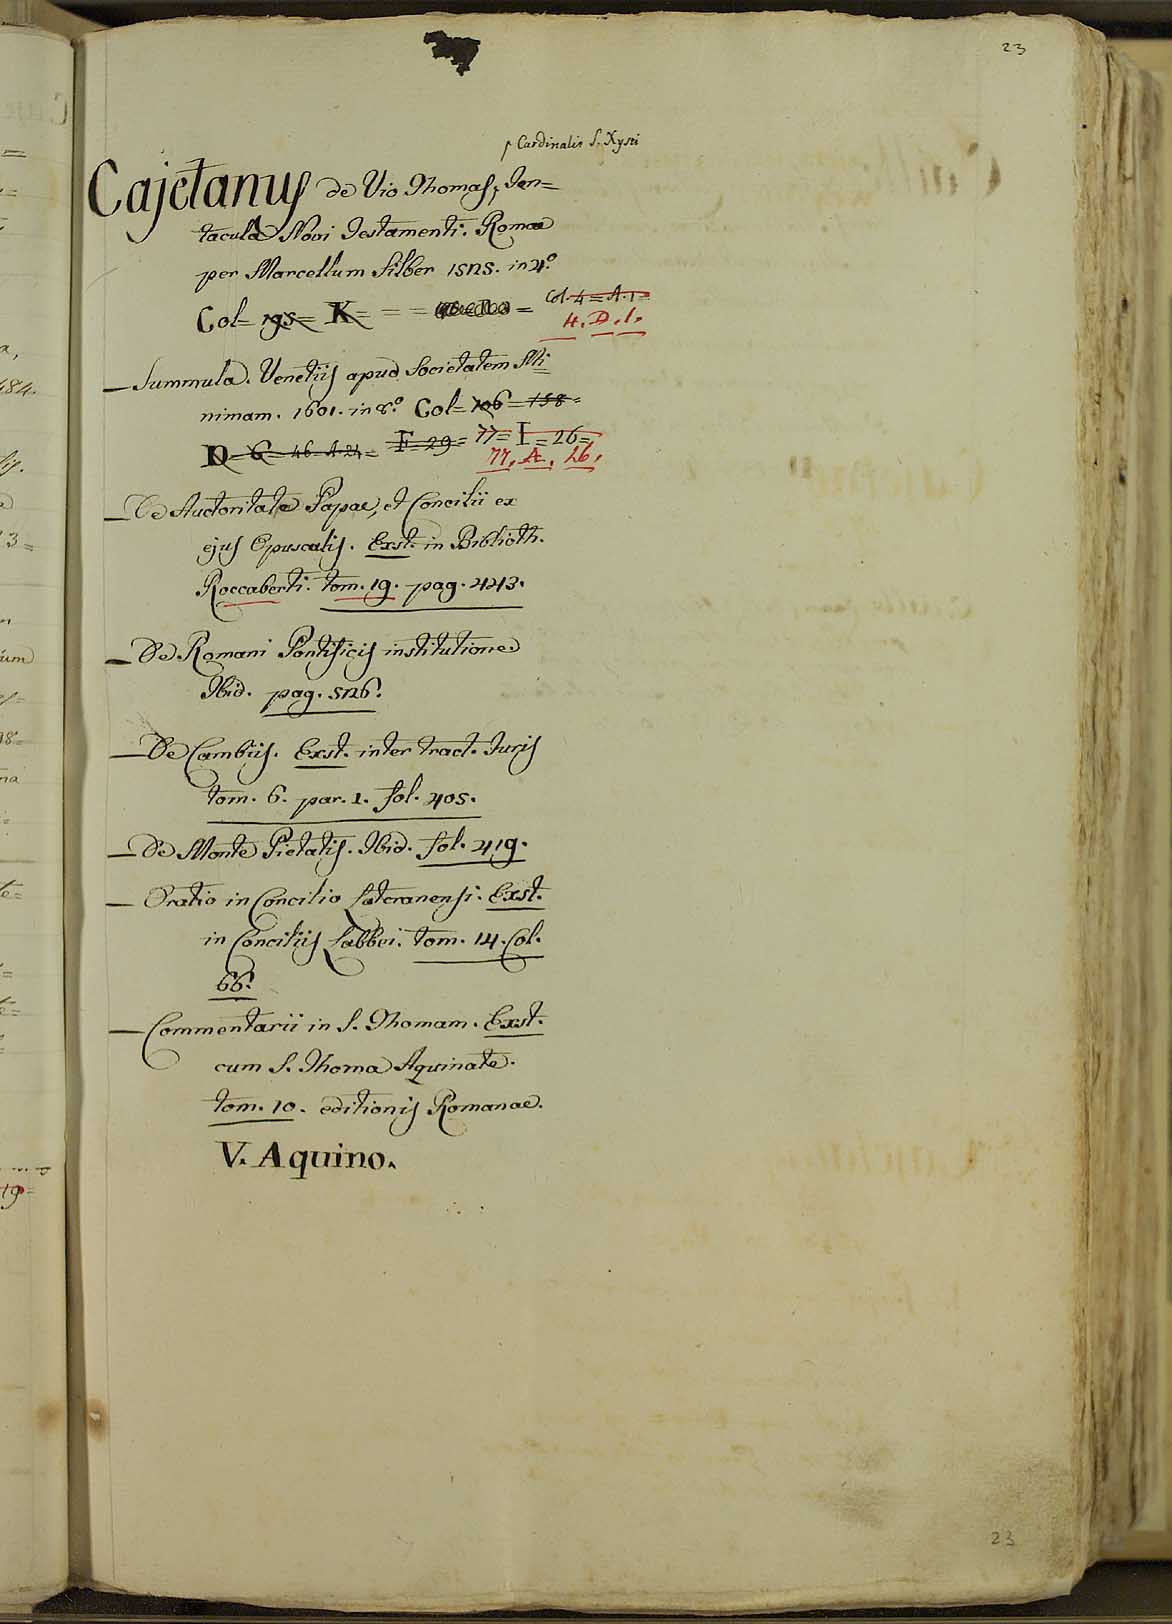 23
Cardinalis S. Xysti
Cajetanus de Vio Thomas, Jen=
tacula Novi Testamenti. Romae
per Marcellum Silber 1525. in 4.º
Col= 195= K= = = = Col. 4= A. 1=
4. D. 1.
— Summula. Venetiis apud Societatem Mi
nimam. 1601. in 8.º Col= 106= 158=
D= 6= 46 A. 21= F= 29= 77= I= 26=
77. A. 26.
— De Auctoritate Papae, et Concilii ex
ejus Opusculis. Exst. in Biblioth.
Roccaberti. tom. 19. pag. 443.
— De Romani Pontificis institutione
Ibid. pag. 526.
— De Cambiis. Exst. inter tract. Juris
tom. 6. par. 1. fol. 405.
— De Monte Pietatis. Ibid. fol. 419.
— Oratio in Concilio Lateranensi. Exst.
in Conciliis Labbei. tom. 14. Col.
66.
— Commentarii in S. Thomam. Exst.
cum S. Thoma Aquinate.
tom. 10. editionis Romanae.
V. Aquino.
23